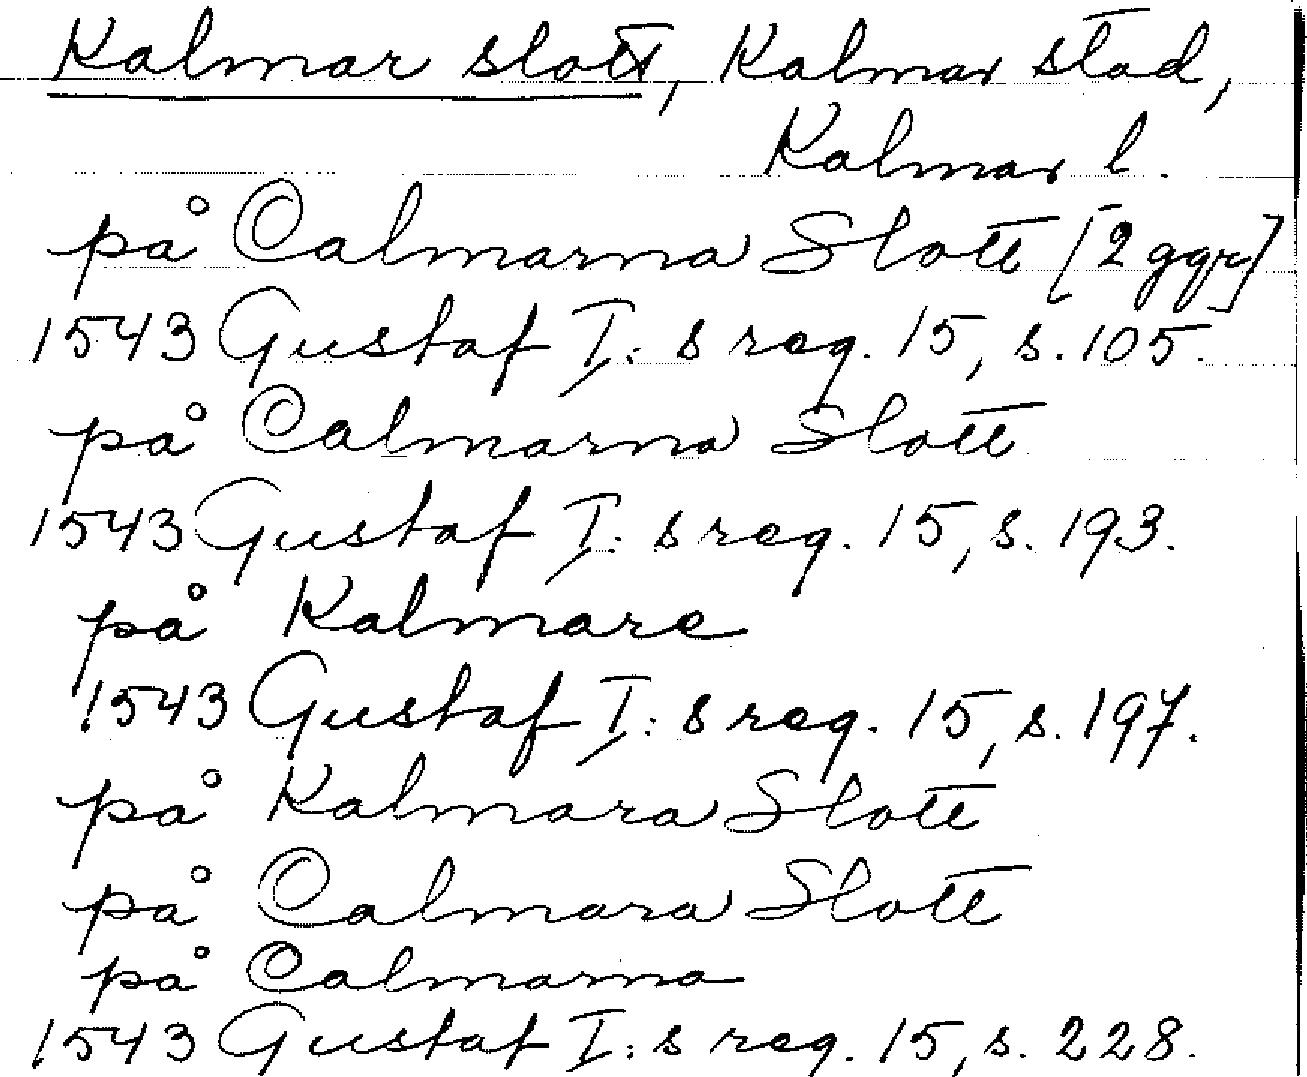 Kalmar slott, Kalmar stad,
Kalmar l.
på Calmarna Slott [2 ggr]
1543 Gustaf I:s reg. 15, s. 105.
på Calmarna Slott
1543 Gustaf I:s reg. 15, s. 193.
på Kalmare
1543 Gustaf I:s reg. 15, s. 197.
på Kalmara Slott
på Calmara Slott
på Calmarna
1543 Gustaf I:s reg. 15, s. 228.